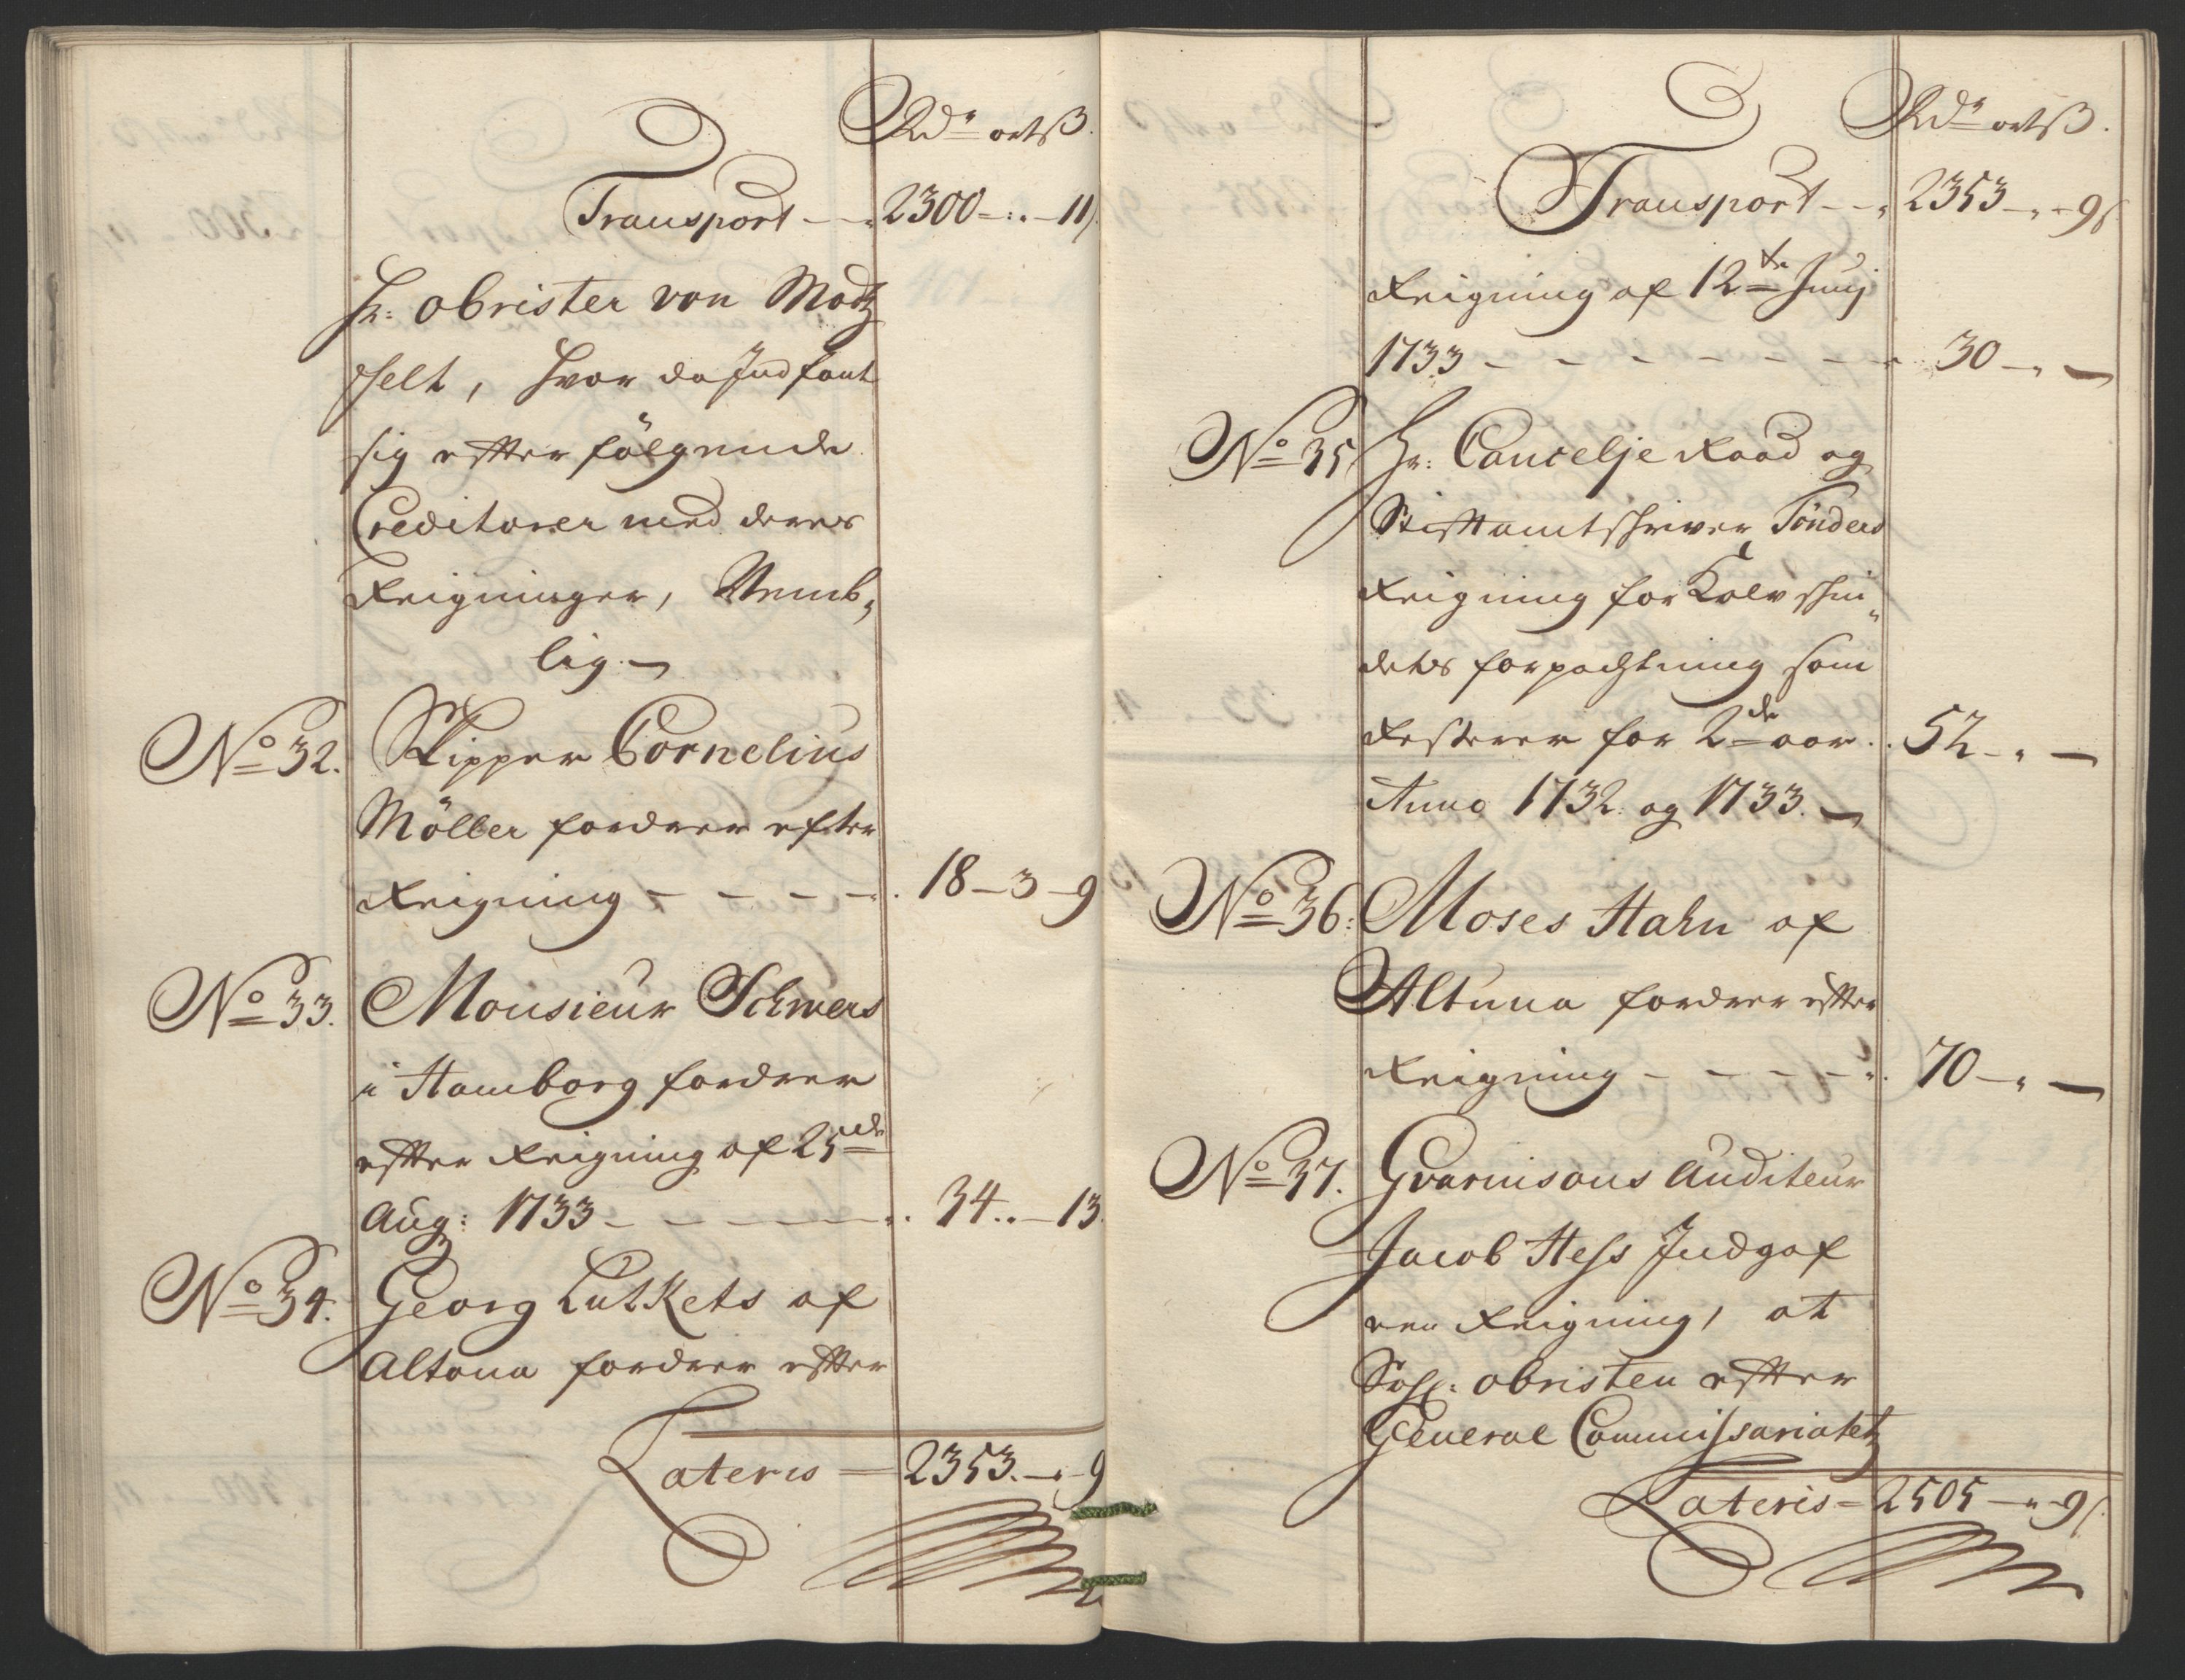 Rdr ort ß.
Transport - - 2300 - „ - 11ß
Hr: obrister von Motz
felt, hvor da Indfant
sig efter følgende
Creditorer med deres
Reigninger, Nemb„
lig. -
No 32. Skipper Cornelius
Möller fordrer efter
Reigning - - - - 18 - 3 - 9
No 33. Monsieur Schwers
i Hamborg fordrer
efter Reigning af 25de
Aug: 1733 - - - - 34 „ - 13.
No 34. Georg Lutkets af
Altona fordrer efter
Lateris = 2353. - „ - 9
Rdr ort ß.
Transport - - 2353 - „ - 9ß
Reigning af 12te Junj
1733 - - - - - - - 30 - „ -
No 35 Hr: Cancelje Raad og
Stiftamtskriver Tönders
Reigning for
forpachtning som
Resterer for 2de aar. 52 - „ -
Anno 1732 og 1733. -
No 36: Moses Hahn af
Altuna fordrer efter
Reigning - - - - 70 - „ -
No 37. Gvarnisons Auditeur
Jacob Hess Indgaf
een Reigning, at
Sahl: obristen efter
General Commissariatetz
Lateris = 2505 - „ - 9ß